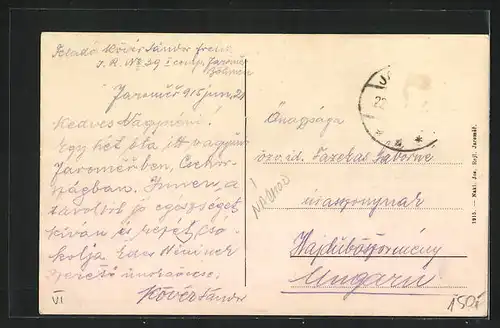 Feladó Kővér Sándor freiw.
I. R. No 39 I comp. Jaroměř
Böhmen
Jaroměř 915 jun. 21
Kedves Nagynéni!
Egy hét óta itt vagyunk
Jaroměřben, Csehor-
szágban. Innen, a
távolból jó egészséget
kíván és kezét cso-
kolja Edes Néninek
szerető unokaöccse.
Kővér Sándor
VI
Őnagysága
özv. id. Fazekas Gáborné
úrasszonynak
Hajdúböszörmény
Ungarn
1915. — Nakl. Jos. Jaroměř.